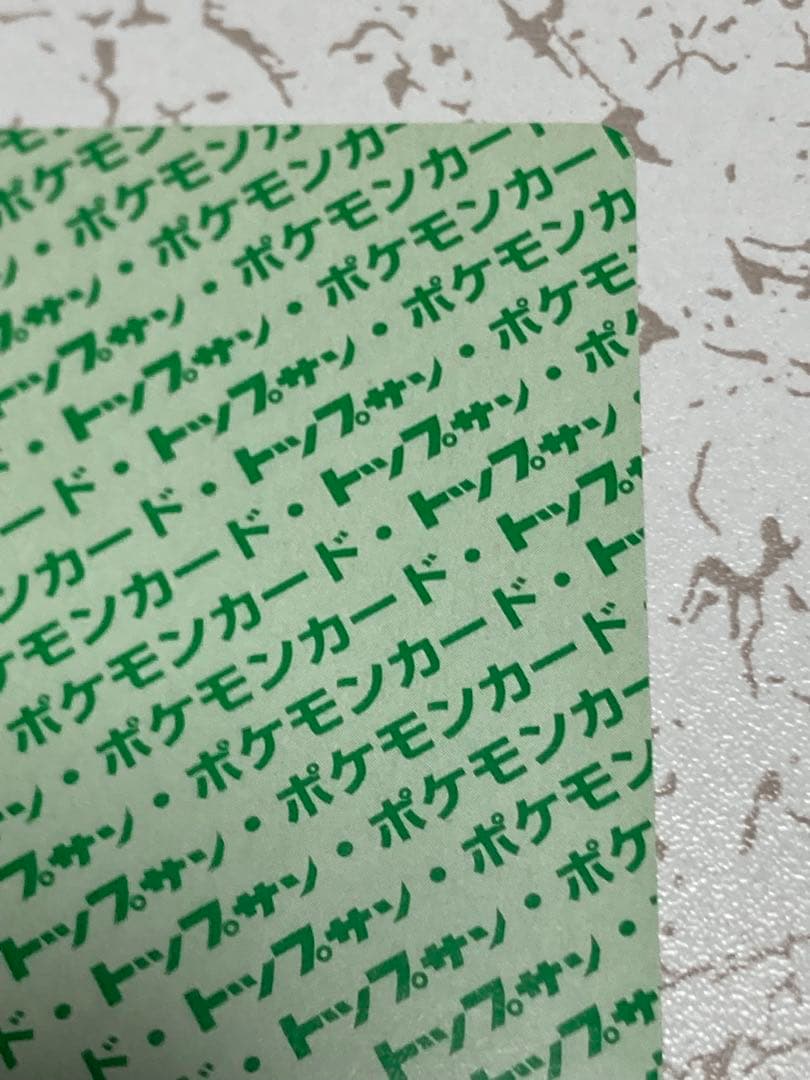 モン
ポケモン
ン・ポケモンカ
プサン・ポケモンカー
トップサン・ポケモンカード
ド・トップサン・ポケモンカード
ード・トップサン・ポケモンカ
ンカード・トップサン・ポケモ
ケモンカード・トップサン・ポケ
ポケモンカード・トップサン・
ン・ポケモンカード・トップサ
プサン・ポケモンカード・トッ
トップサン・ポケモンカード
ド・トップサン・ポケモンカー
ド・トップサン・ポケモン
・トップサン・ポケ
トップサン・
トップサ